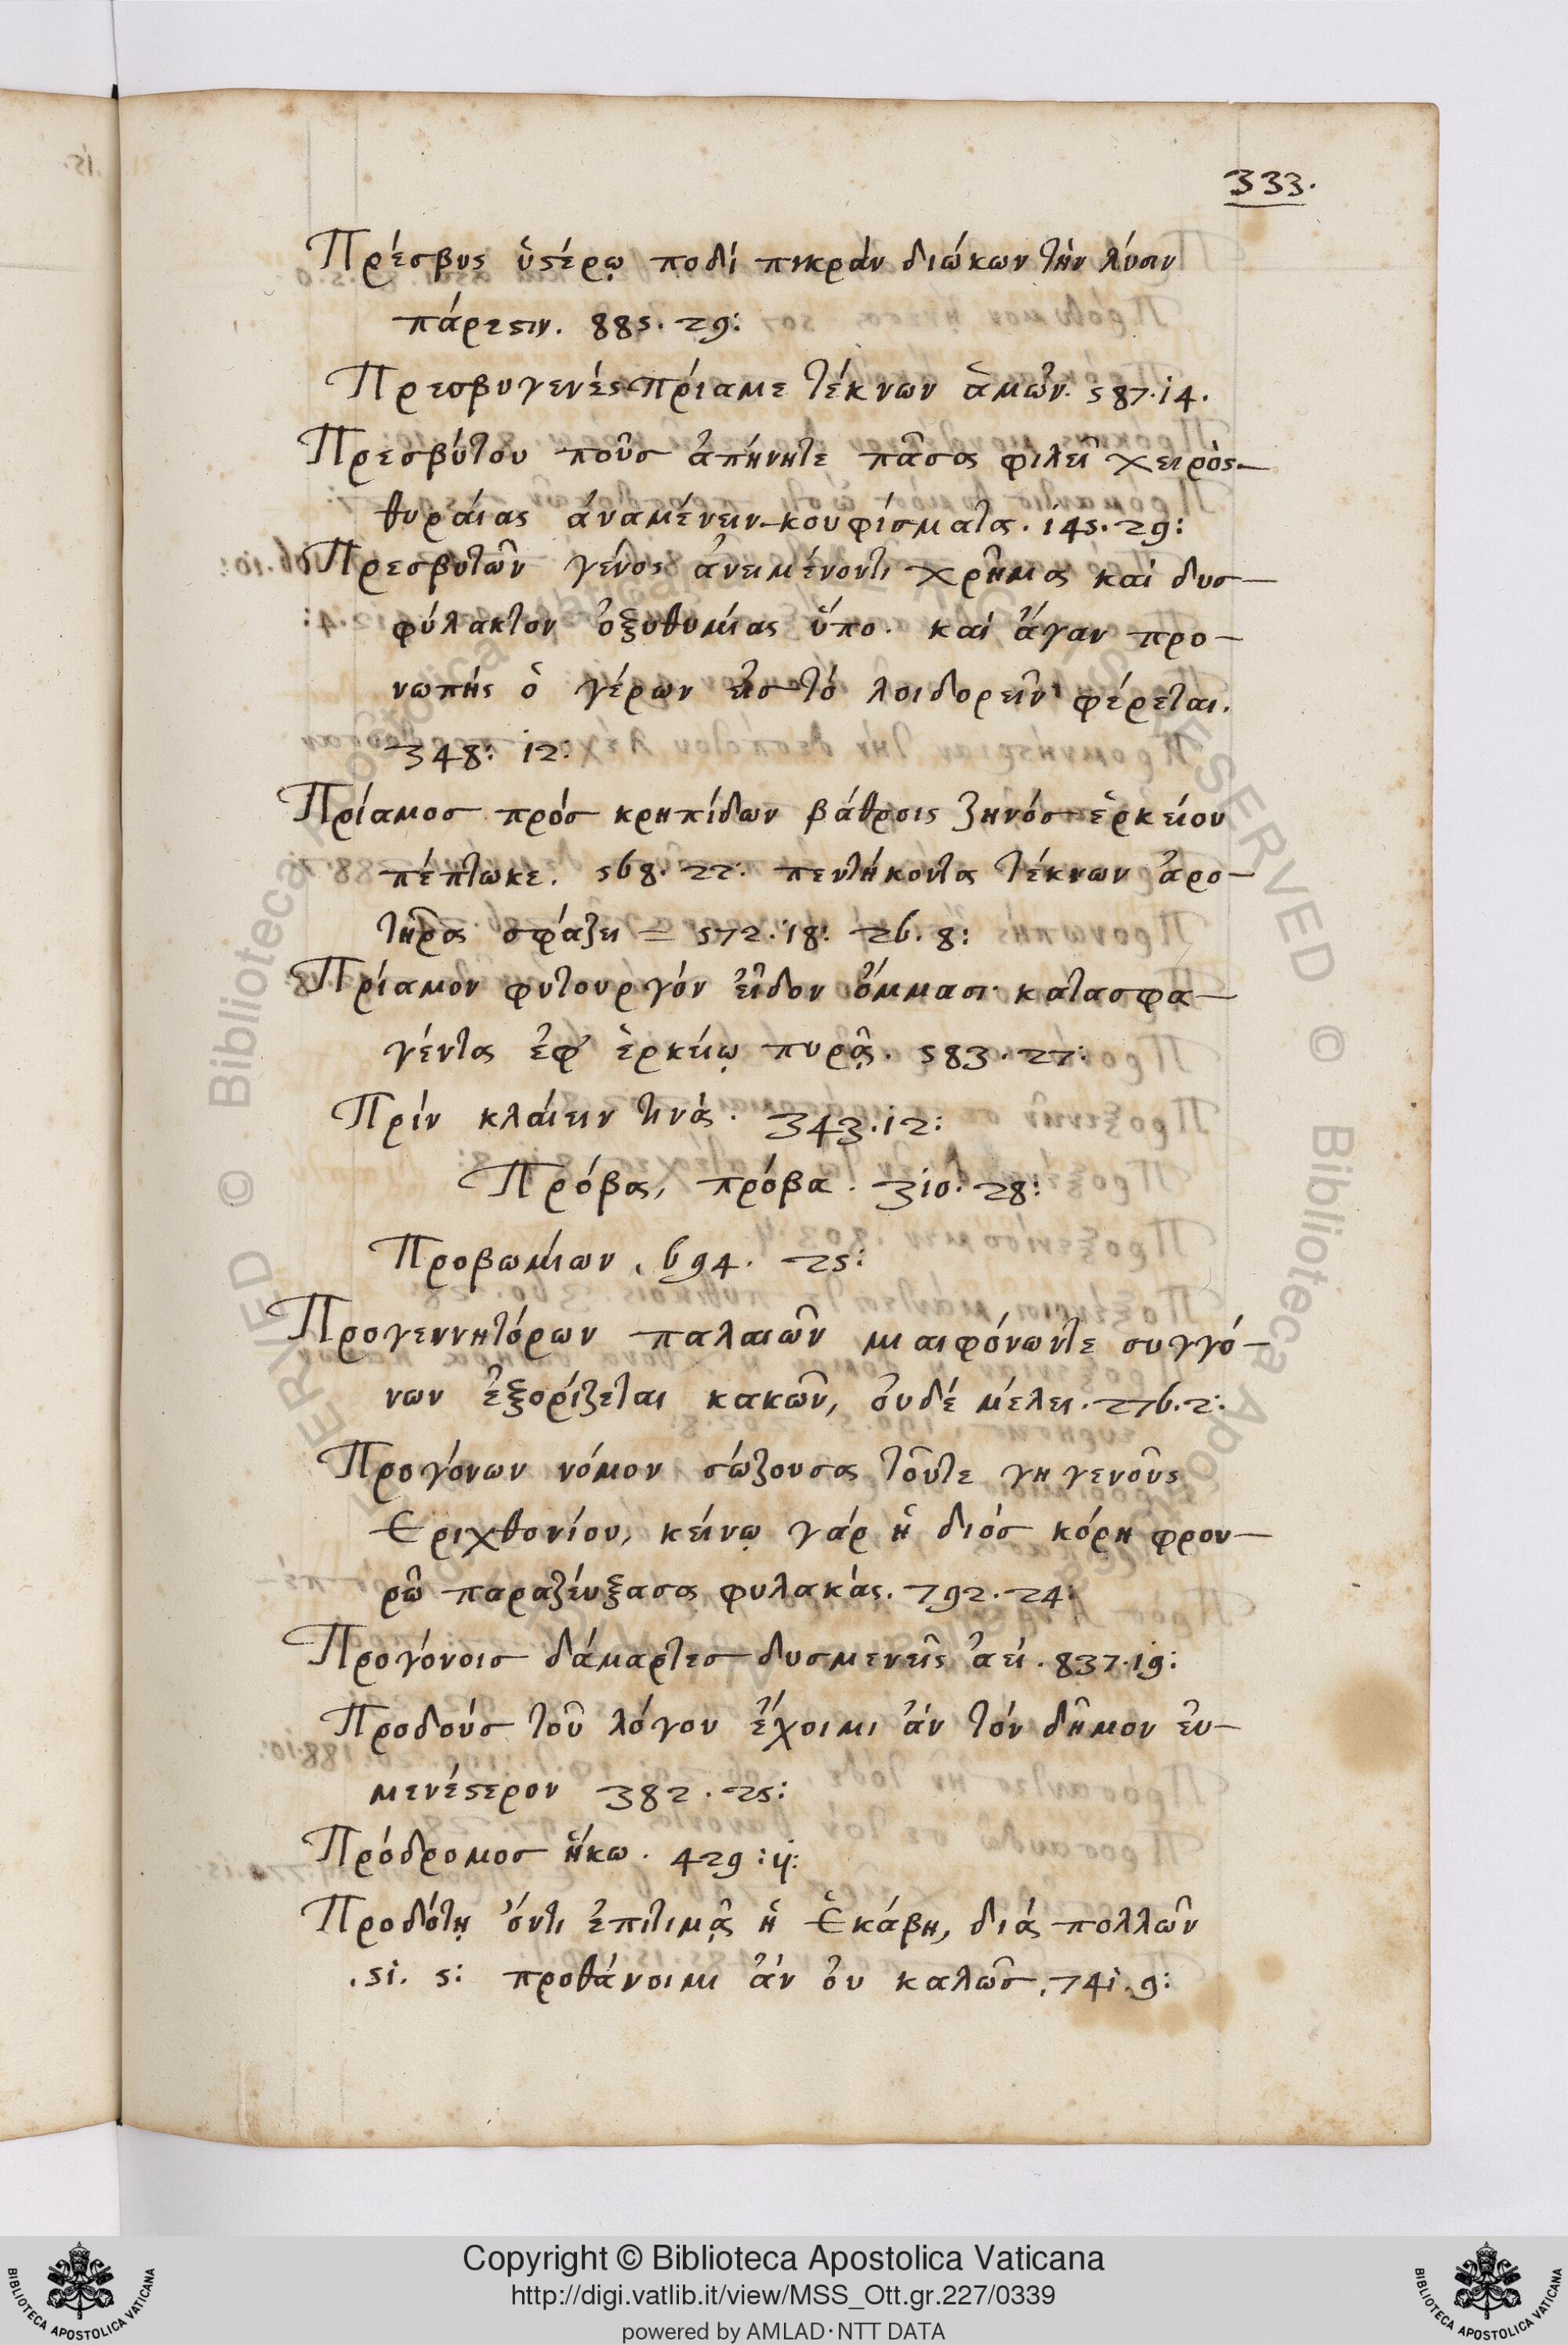 333.
Πρέσβυς ὑστέρῳ ποδί πικράν διώκων τήν λύσιν
πάρεστιν. 885. 29:
Πρεσβυγενές πρίαμε τέκνων ἁμῶν. 587. 14.
Πρεσβύτου ποῦσ ἀπήνητε πᾶσα φιλεῖ χειρὸς
θυραίας ἀναμένειν κουφίσματα. 145. 29:
Πρεσβυτῶν γένος ἀνειμένοντι χρῆμα καὶ δυσ-
φύλακτον ὀξυθυμίας ὕπο. καὶ ἄγαν προ-
νωπής ὁ γέρων εἰσ τό λοιδορεῖν φέρεται.
348: 12:
Πρίαμοσ πρόσ κρηπίδων βάθροις ζηνόσ ἑρκείου
πέπτωκε. 568. 22: πεντήκοντα τέκνων ἀρο-
τῆρα σφάζει = 572. 18: 26. 8:
Πρίαμον φυτουργόν εἶδον ὄμμασι κατασφα-
γέντα ἐφ' ἑρκείῳ πυρᾷ. 583. 27:
Πρίν κλαίειν τινά. 343. 12:
Πρόβα, πρόβα. 310. 28:
Προβωμίων. 694. 25:
Προγεννητόρων παλαιῶν μιαιφόνωντε συγγό-
νων ἐξορίζεται κακῶν, οὐδέ μέλει. 276. 2:
Προγόνων νόμον σώζουσα τοῦτε γηγενοῦς
Εριχθονίου, κείνῳ γάρ ἡ διόσ κόρη φρου-
ρὼ παραζεύξασα φυλακάς. 792. 24:
Προγόνοισ δάμαρτεσ δυσμενεῖς ἀεί. 837. 19:
Προδούσ τοῦ λόγου ἔχοιμι ἀν τόν δῆμον εὐ-
μενέστερον 382. 25:
Πρόδρομοσ ἥκω. 429: 11:
Προδότῃ ὄντι ἐπιτιμᾷ ἡ Ἑκάβη, διά πολλῶν
. 51. 5: προθάνοιμι ἀν οὐ καλῶσ. 741. 9:
Copyright © Biblioteca Apostolica Vaticana
http://digi.vatlib.it/view/MSS_Ott.gr.227/0339
powered by AMLAD·NTT DATA